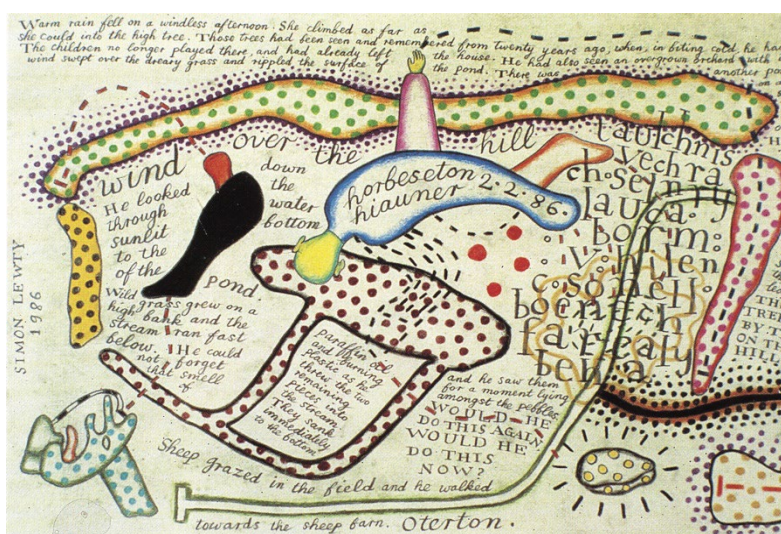 Warm rain fell on a windless afternoon. She climbed as far as
she could into the high tree. Those trees had been seen and remembered from twenty years ago, when, in biting cold, he had
The children no longer played there, and had already left the house. He had also seen an overgrown orchard with
wind swept over the dreary grass and rippled the surface of the pond. There was another
on
wind over the hill
He looked
through
sunlit
to the
of the
down
the
water
bottom
pond.
Wild grass grew on a
high bank and the
stream ran fast
below. He could
not forget
that smell
of
horbeseton 2.2.86.
hiauner
taulchnis
vechra
ch.selnry
lauda.
bofrm:
v.hflen
c.sohell
boenech
farealy
bena
paraffin oil
and burning
plastic as he
threw the two
remaining
pieces into
the stream.
They sank
immediately
to the bottom
and he saw them
for a moment lying
amongst the pebbles.
WOULD HE
DO THIS AGAIN?
WOULD HE
DO THIS
NOW?
Sheep grazed in the field and he walked
towards the sheep barn. Oterton.
SIMON LEWTY
1986
THE
TREE
BY
ON TH
HILL